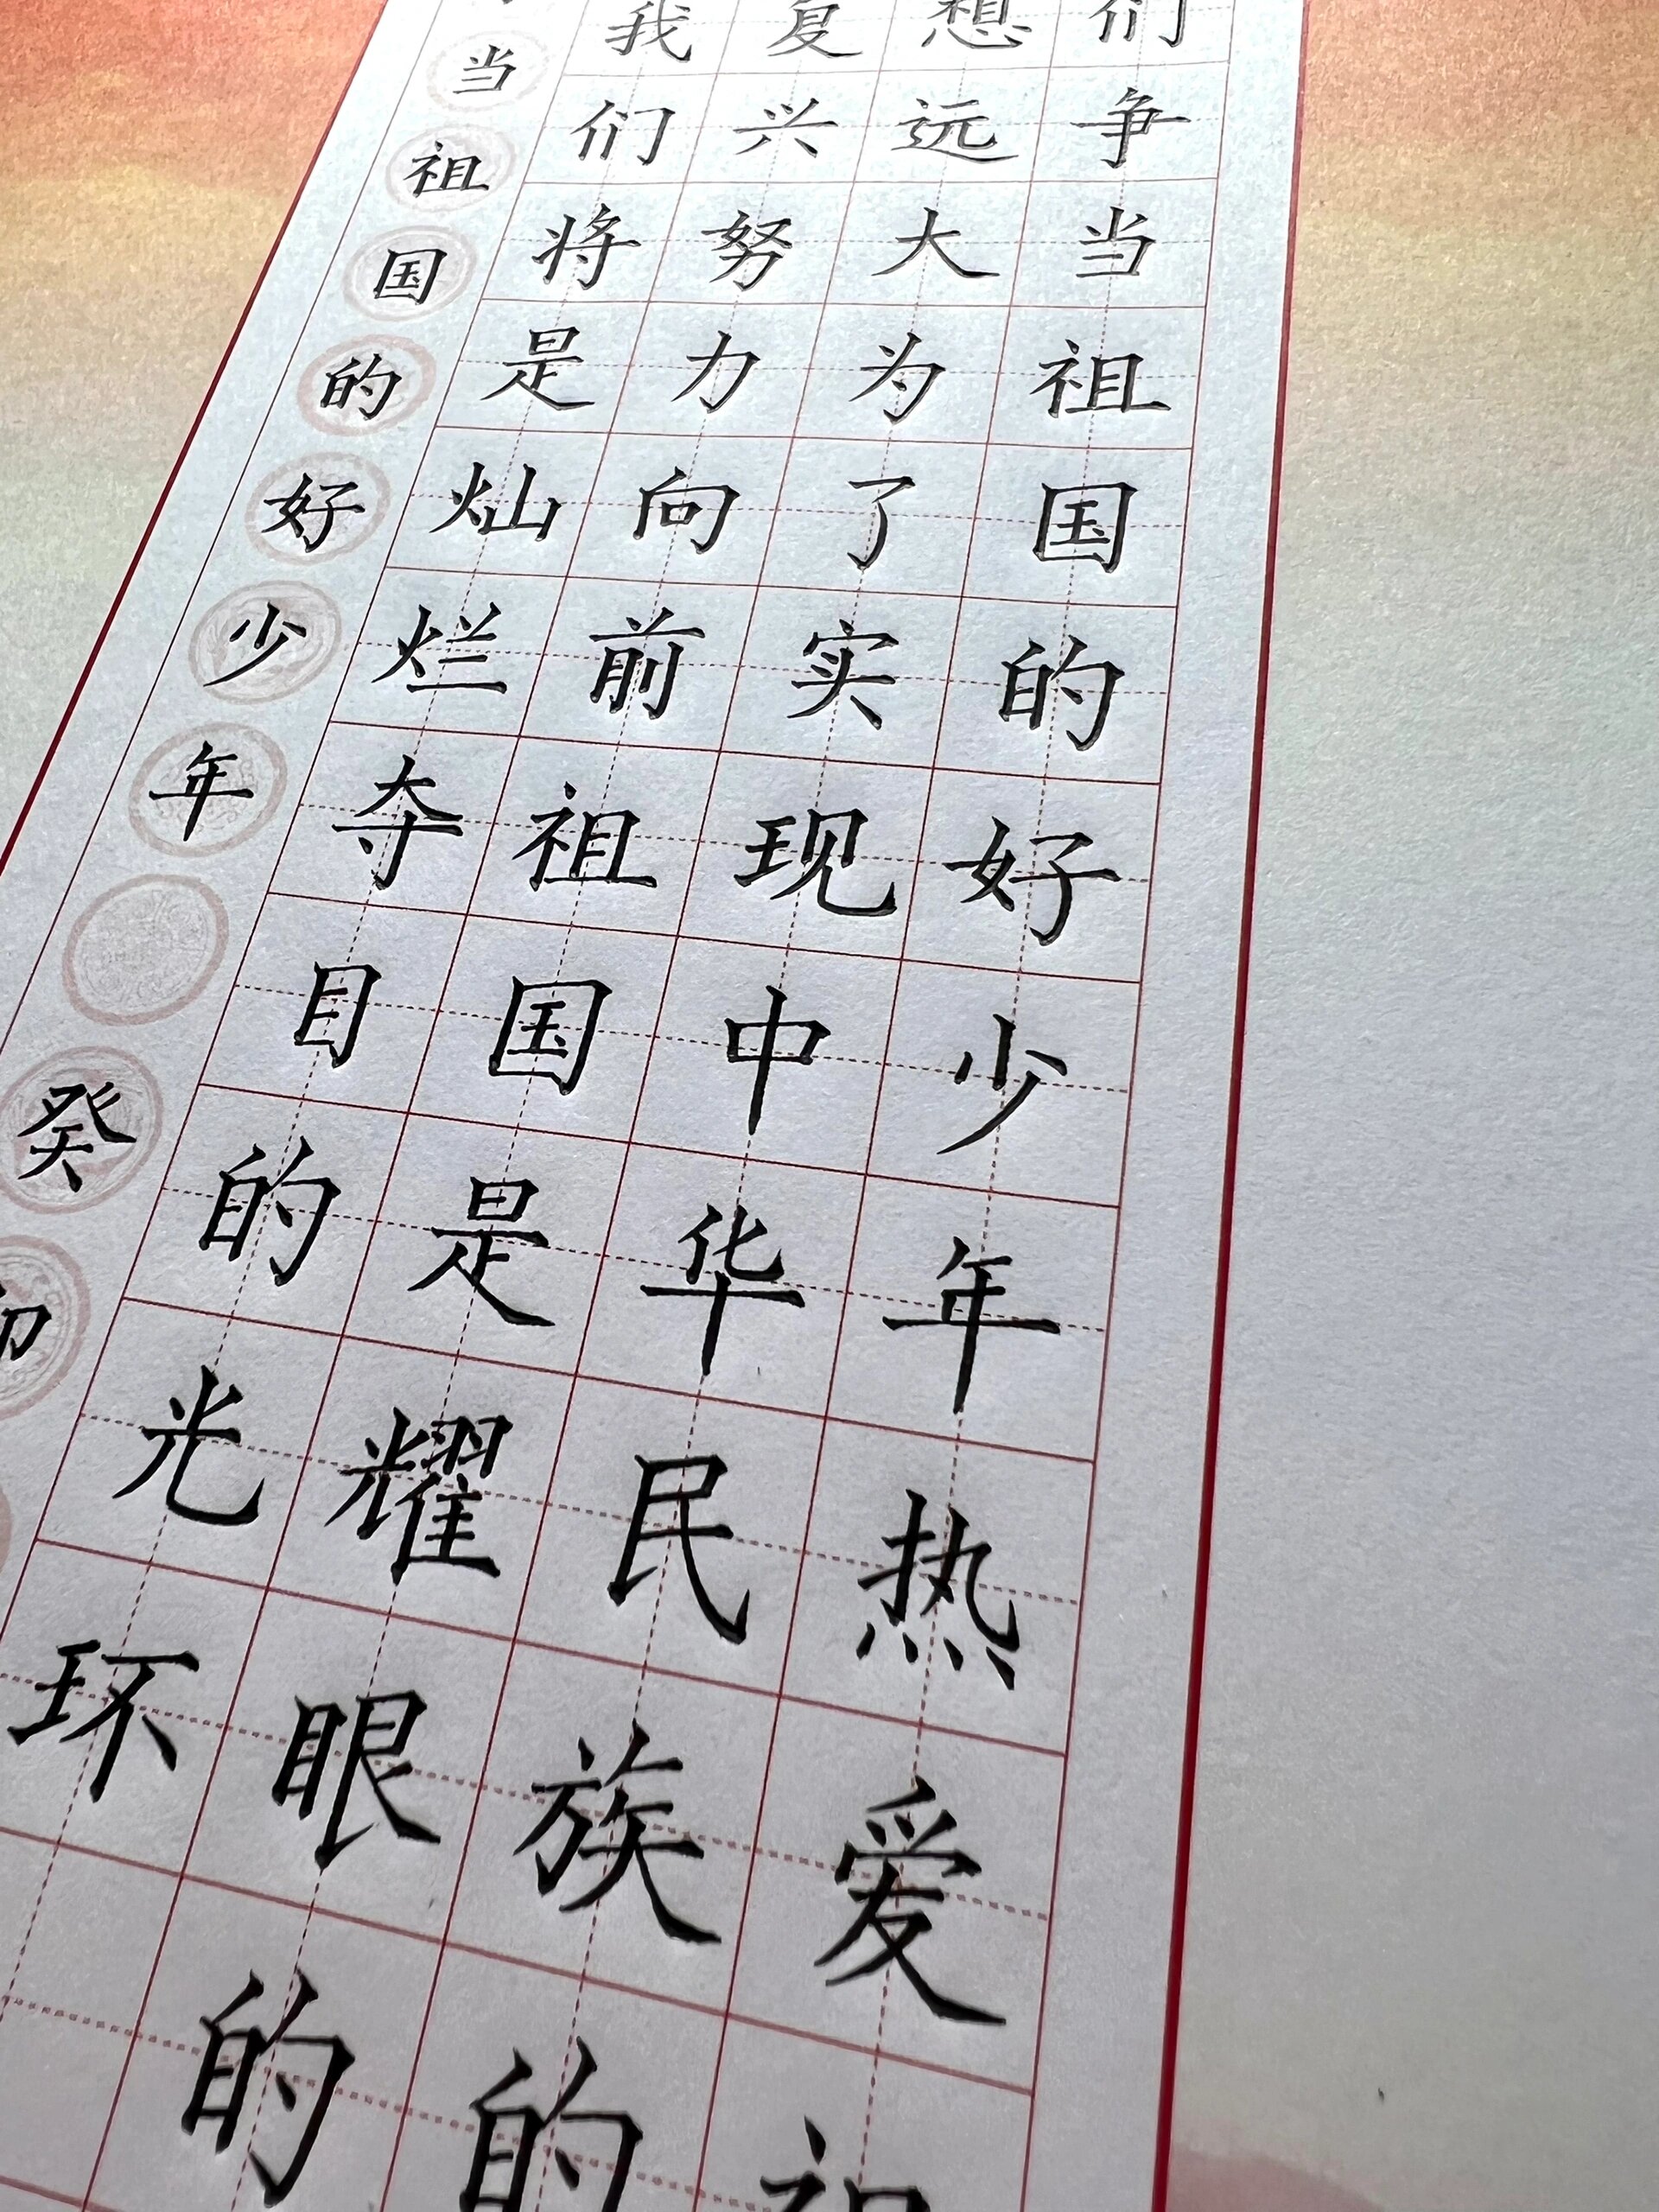 们争当祖国的好少年热爱祖
想远大为了实现中华民族的
复兴努力向前祖国是耀眼的
我们将是灿烂夺目的光环
当祖国的好少年 癸